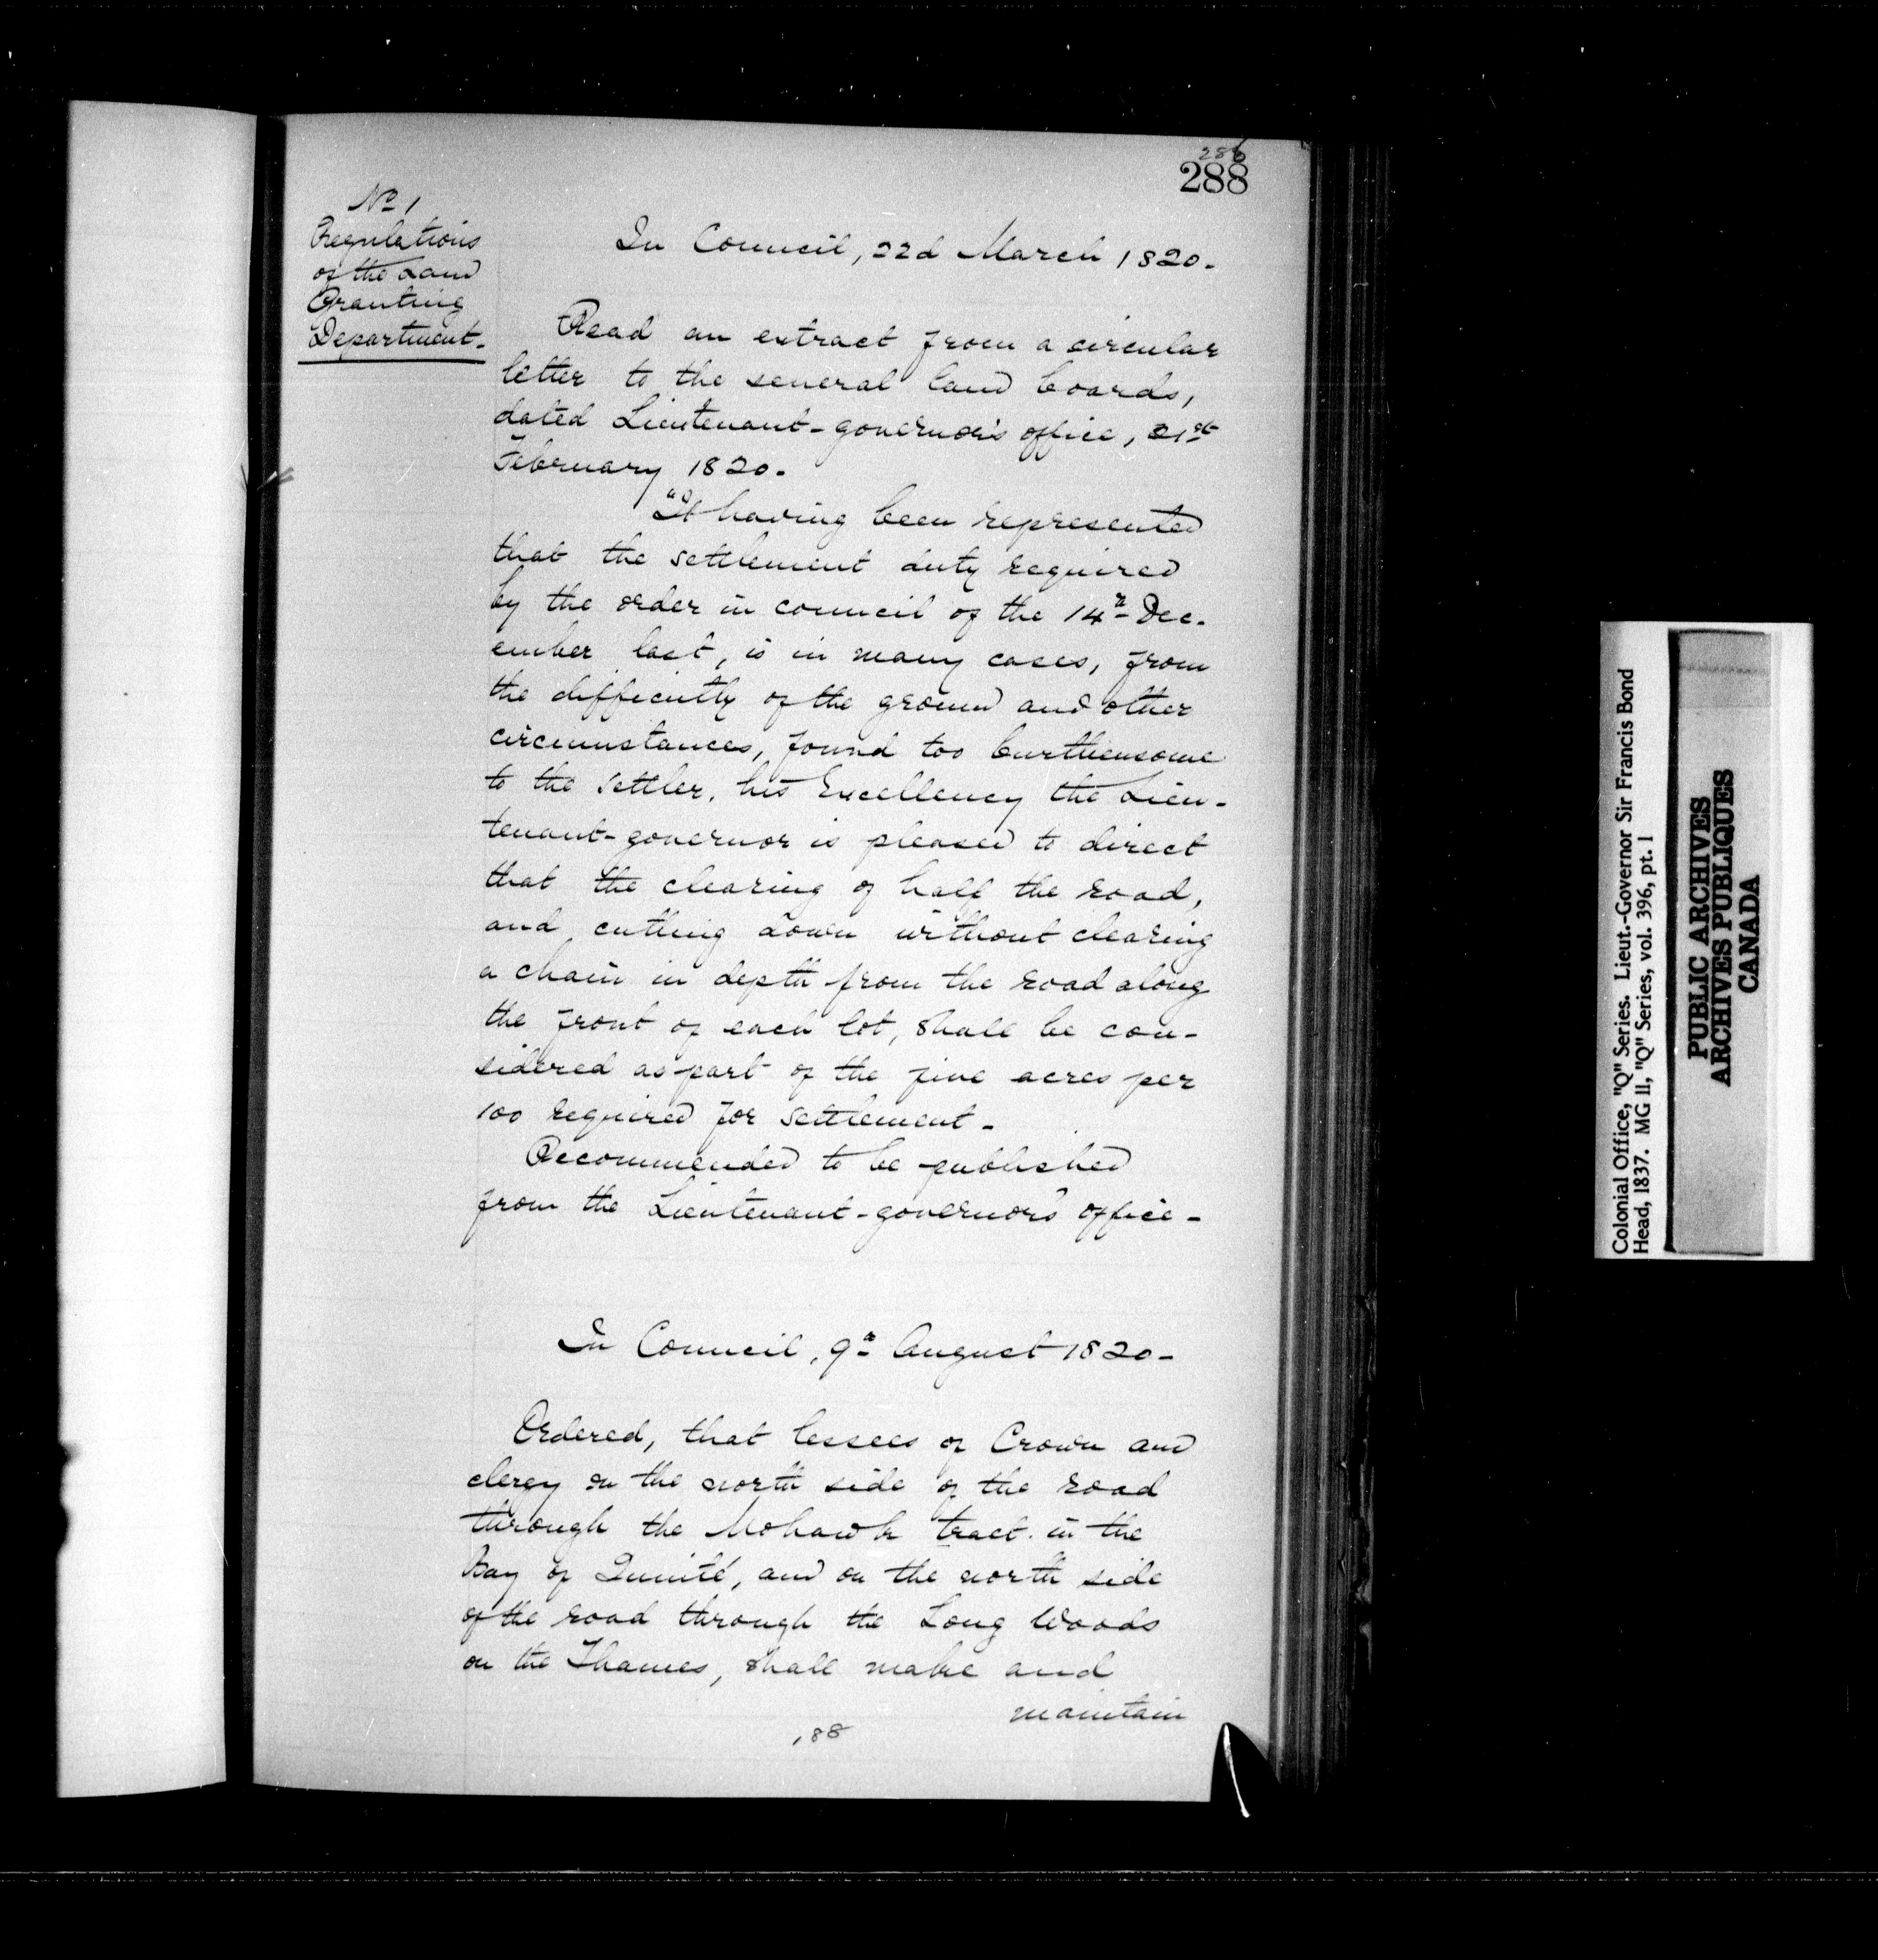 286
288
No 1
Regulations
of the Land
Granting
Department.
In Council, 22d March 1820.
Read an extract from a circular
letter to the several land boards,
dated Lieutenant-governor's office, 21st
February 1820.
"It having been represented
that the settlement duty required
by the order in council of the 14th Dec-
ember last, is in many cases, from
the difficulty of the ground and other
circumstances, found too burthensome
to the settler, his Excellency the Lieu-
tenant-governor is pleased to direct
that the clearing of half the road,
and cutting down without clearing
a chain in depth from the road along
the front of each lot, shall be con-
sidered as part of the five acres per
100 required for settlement.
Recommended to be published
from the Lieutenant-governor's office.
In Council, 9th August 1820.
Ordered, that lessees of Crown and
clergy on the north side of the road
through the Mohawk tract in the
Bay of Quinté, and on the north side
of the road through the Long Woods
on the Thames, shall make and
maintain
188
Colonial Office, "Q" Series. Lieut.-Governor Sir Francis Bond
Head, 1837. MG 11, "Q" Series, vol. 396, pt. 1
PUBLIC ARCHIVES
ARCHIVES PUBLIQUES
CANADA